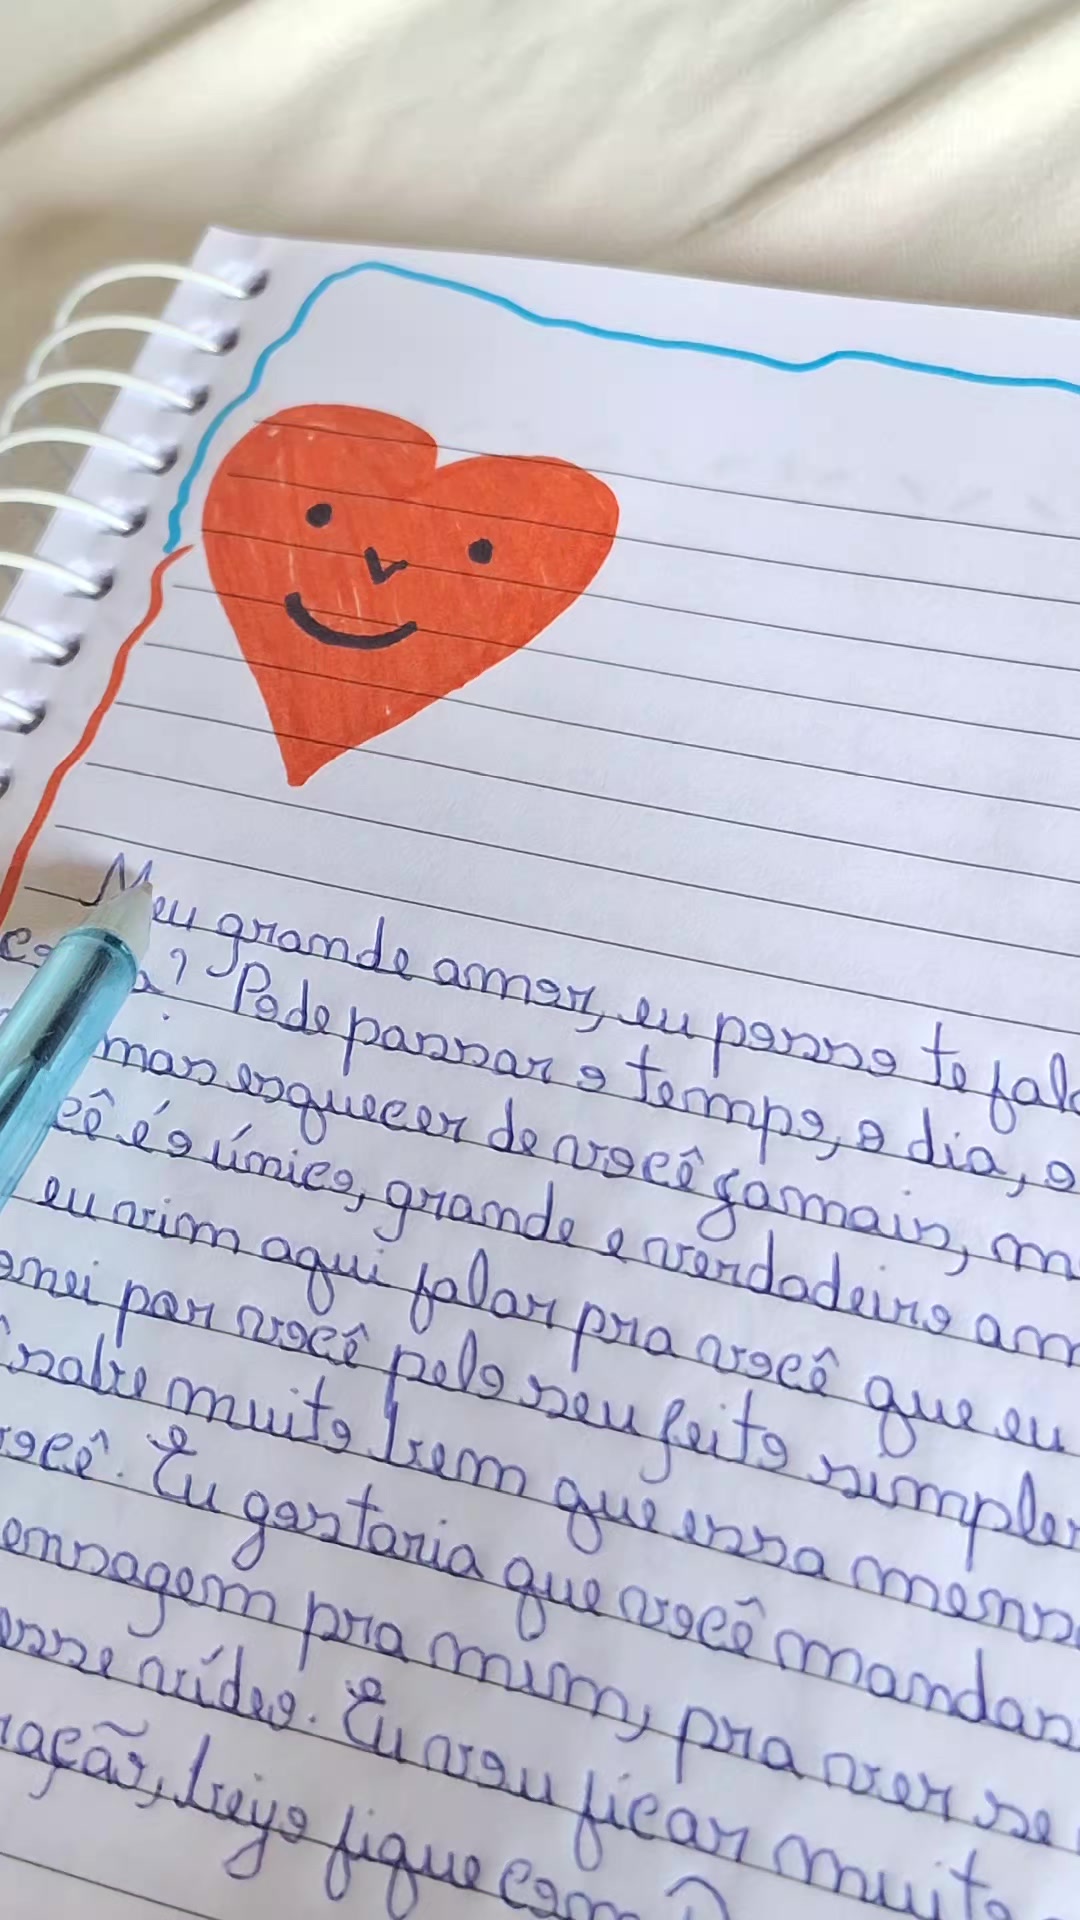 Meu grande amor, eu posso te fala
? Pode passar o tempo, o dia, o
mas esquecer de você jamais, m
cê é o único, grande e verdadeiro am
eu vim aqui falar pra você que eu
onei por você pelo seu jeito simples
sabe muito bem que essa mens
você. Eu gostaria que você mandas
ensagem pra mim, pra ver se
esse vídeo. Eu vou ficar muito
ração, beijo fique com D